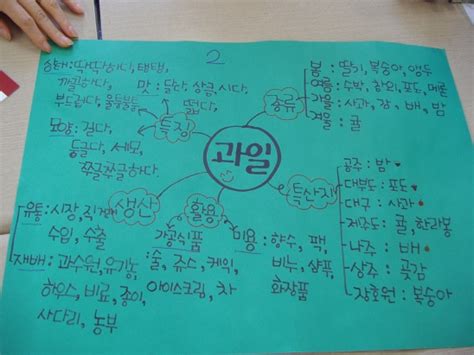 2
상태 : 딱딱하다, 탱탱,
까끌하다,
부드럽다, 울퉁불퉁
맛 : 달다, 상큼, 시다,
떫다,
모양 : 길다,
둥글다, 세모,
쭈글쭈글하다.
특징
종류
봄 : 딸기, 복숭아, 앵두
여름 : 수박, 참외, 포도, 메론
가을 : 사과, 감, 배, 밤
겨울 : 귤
과일
특산지
공주 : 밤
대부도 : 포도
대구 : 사과
제주도 : 귤, 한라봉
나주 : 배
상주 : 곶감
장호원 : 복숭아
생산
유통 : 시장, 직거래
수입, 수출
재배 : 과수원, 유기농,
하우스, 비료, 종이,
사다리, 농부
활용
가공식품
: 술, 쥬스, 케익,
아이스크림, 차
미용 : 향수, 팩,
비누, 샴푸,
화장품